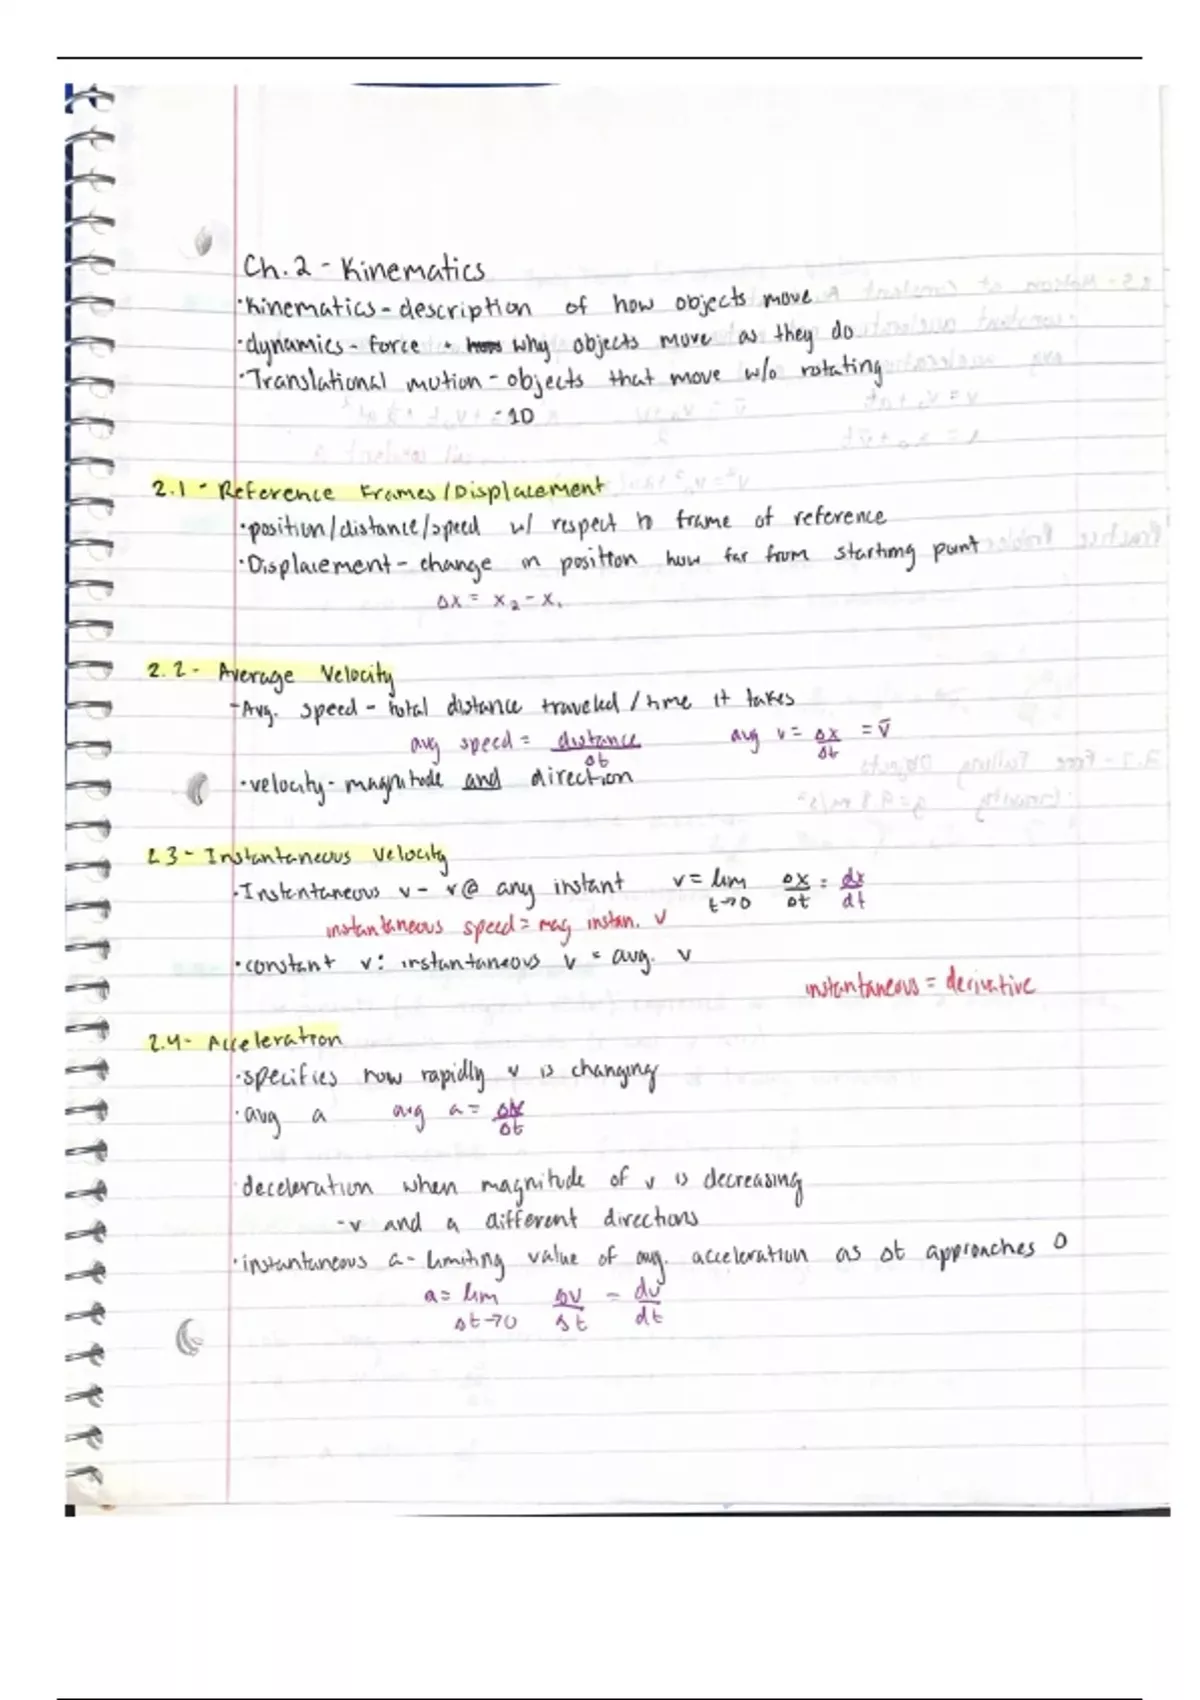 Ch. 2 - Kinematics
·Kinematics - description of how objects move
·dynamics - force + why objects move as they do
·Translational motion - objects that move w/o rotating
-1D
2.1 - Reference Frames/Displacement
·position/distance/speed w/ respect to frame of reference
·Displacement - change in position how far from starting point
Δx = x₂ - x₁
2.2 - Average Velocity
-Avg. speed - total distance traveled / time it takes
avg speed = distance / Δt avg v = Δx / Δt = v̄
·velocity - magnitude and direction
2.3 - Instantaneous Velocity
·Instentaneous v - v @ any instant v = lim t→0 Δx / Δt = dx / dt
instantaneous speed = mag instan. v
·constant v: instantaneous v = avg. v
instantaneous = derivative
2.4 - Acceleration
·specifies how rapidly v is changing
·avg a avg a = Δv / Δt
deceleration when magnitude of v is decreasing
-v and a different directions
·instantaneous a - limiting value of avg. acceleration as Δt approaches 0
a = lim Δt→0 Δv / Δt = dv / dt